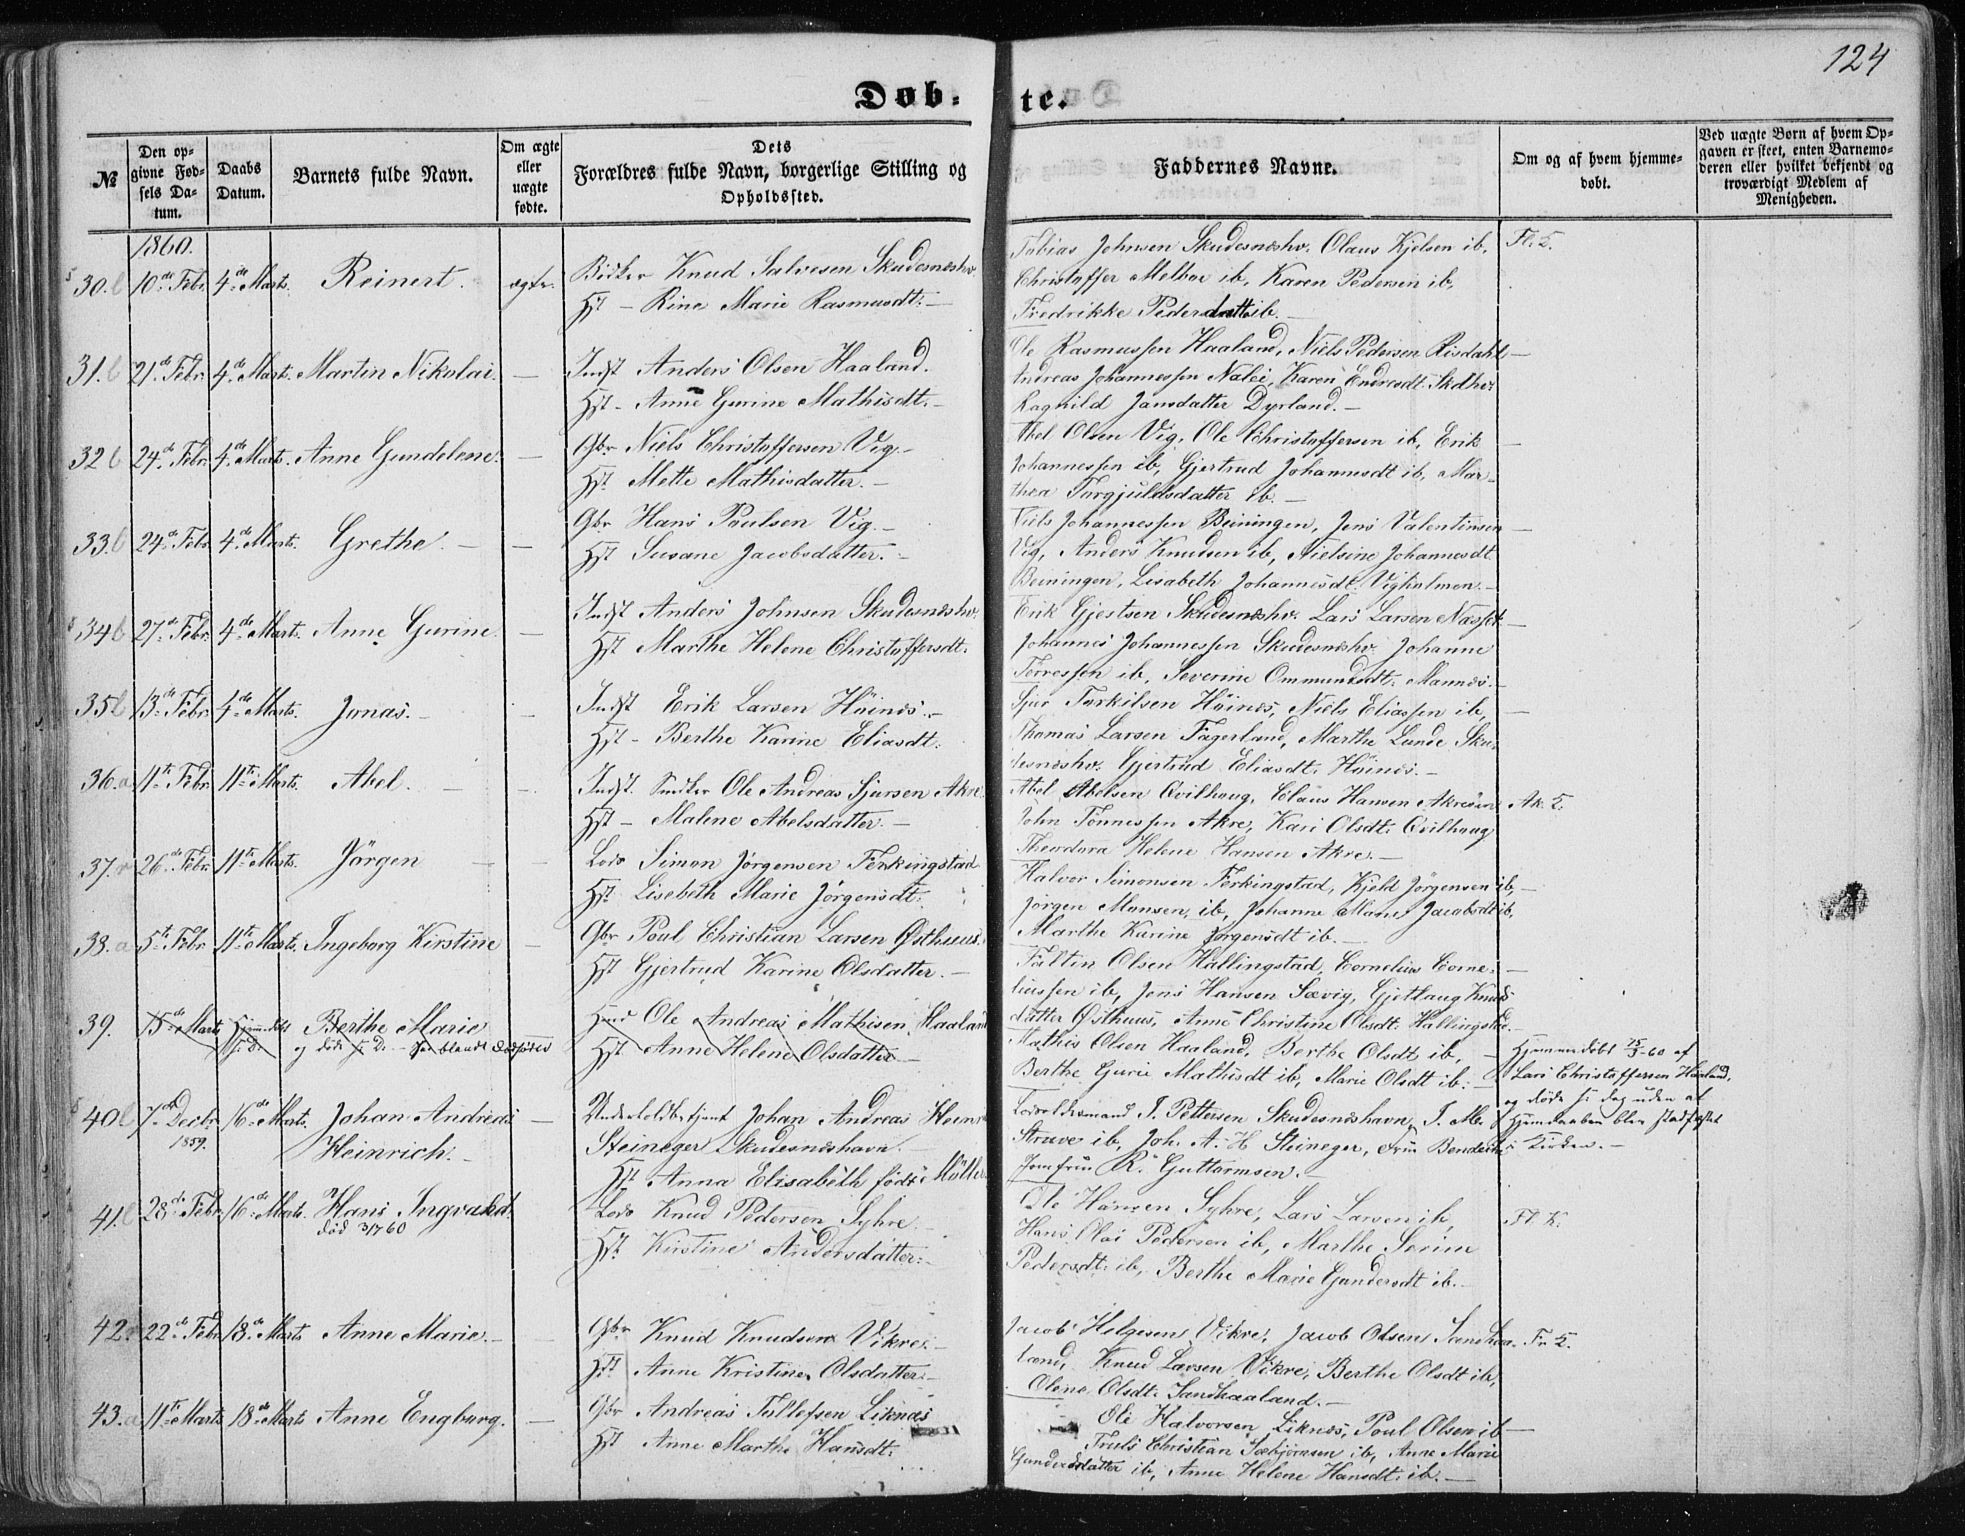 124
Døb-te.
№
Den opgivne Fødsels Datum.
Daabs Datum.
Barnets fulde Navn.
Om ægte eller uægte fødte.
Dets Forældres fulde Navn, borgerlige Stilling og Opholdssted.
Faddernes Navne.
Om og af hvem hjemmedøbt.
Ved uægte Børn af hvem Opgaven er skeet, enten Barnemoderen eller hvilket bekjendt og troværdigt Medlem af Menigheden.
1860.
30. 10de Febr. 4de Marts. Reinert. ægte. Knud Salvesen Skudesneshv.
Hst – Rine Marie Rasmusdt. –
Tobias Johnsen Skudesneshv. Olaus Kjelsen ib,
Christoffer Melboe ib, Karen Pedersen ib,
Fredrikke Pedersdatt ib. –
Fl. T.
31. 21de Febr. 4de Marts. Martin Nikolai. — Indst Anders Olsen Haaland.
Hst – Anne Gurine Mathisdt. –
Ole Rasmussen Haaland, Niels Pedersen Risdahl —
Andreas Johannessen Nalei, Karen Endresdt. Skdhv.
Ragnild Jansdatter Dyrland. –
32 24de Febr. 4de Marts. Anne Gundelene. — Gbr Niels Christoffersen Vig –
Hst. Mette Mathisdatter. –
Thel Olsen Vig, Ole Christoffersen ib, Erik —
Johannessen ib, Gjertrud Johannesdt ib, Mar-
thea Torgjulsdatter ib. –
33. 24de Febr. 4de Marts. Grethe. — — Gbr Hans Poulsen Vig. –
Hst Susane Jacobsdatter. –
Niels Johannessen Beiningen, Jens Valentinsen —
Vig, Anders Knudsen ib, Nielsine Johannesdt
Beiningen, Lisabeth Johannesdt. Vigholmen. –
34 27de Febr. 4de Marts. Anne Gurine. — Indst Anders Johnsen Skudesneshv.
Hst Marthe Helene Christoffersdt.
Erik Gjertsen Skudesneshv. Lars Larsen Næsset —
Johannes Johannessen Skudesneshv. Johanne
Tørressen ib, Severine Ommundsdt. Mannes. –
35 13de Febr. 4de Marts. Jonas. – — Indst Erik Larsen Höines. –
Hst – Berthe Karine Eliasdt.
Sjur Torkilsen Höines, Niels Eliassen ib, —
Thomas Larsen Fagerland, Marthe Lunde Sku-
desneshv. Gjertrud Eliasdt. Höines. –
36.a 11te Febr. 11te Marts. Abel. — — Indst. Ole Andreas Sjursen Akre.
Hst – Malene Abelsdatter. –
Abel Abelsen Qvilhoug, Claus Hansen Akreöen
John Tønnessen Akre, Kari Olsdt. Qvilhoug
Theodora Helene Hansen Akre. –
Ak. T.
37. 26de Febr. 11te Marts. Jörgen — — Lods Simon Jørgensen Ferkingstad
Hst. Lisebeth Marie Jörgensdt.
Halvor Simonsen Ferkingstad, Kjeld Jørgensen ib, —
Jørgen Monsen, ib, Johanne Marie Jacobsdt ib,
Marthe Karine Jørgensdt ib. –
38.a 5te Febr 11te Marts. Ingeborg Kirstine — Gbr Poul Christian Larsen Østhuus.
Hst Gjertrud Karine Olsdatter. –
Faltin Olsen Hallingstad, Cornelius Corne- —
liussen ib, Jens Hansen Sævig, Gjetlaug Knuds
datter Østhuus, Anne Christine Olsdt. Hallingstad. –
39. 15de Marts Hjemdöbt s. D. Berthe Marie
og döde s. D. – Ole Andreas Mathisen, Haaland
Hst Anne Helene Olsdatter –
Mathis Olsen Haaland, Berthe Olsdt ib, —
Berthe Gurie Mathisdt ib, Marie Olsdt ib. –
Hjemmedöbt 15/3-60 af
Lars Christoffersen Haaland,
og döde s. Dag uden at
Hjemdaaben blev stadfæstet
i Kirken. –
40 7de Decbr 1859. 16de Marts. Johan Andreas Heinrich. – — UnderToldbetjent Johan Andreas Heinr.
Steineger Skudesneshavn. –
Hst Anna Elisabeth födt Möller
J. Pettersen Skudesneshavn, J. M.
Struve ib, Joh. A. H. Steineger, Fru
Jomfru R. Guttormsen. –
41. 28de Febr. 16de Marts. Hans Ingvald.
död 31/7 60
Lods Knud Pedersen Syhre.
Hst. Kirstine Andersdatter. –
Ole Hansen Syhre, Lars Larsen ib,
Hans Olai Pedersen ib, Marthe Serine
Pedersdt. ib, Berthe Marie Gundersdt ib. –
Fl. K.
42. 22de Febr. 18de Marts Anne Marie. – — Gbr Knud Knudsen Vikre. –
Hst Anne Kristine Olsdatter. –
Jacob Helgesen Vikre, Jacob Olsen Sandhaa-
land, Knud Larsen Vikre, Berthe Olsdt ib,
Olene Olsdt. Sandhaaland. –
Fr. T.
43.a 11te Marts 18de Marts Anne Engborg. — Gbr Andreas Tollefsen Liknes
Hst Anne Marthe Hansdt.
Ole Halvorsen Liknes, Poul Olsen ib —
Truls Christian Sæbjørnsen ib, Anne Marie
Gundersdatter ib, Anne Helene Hansdt. ib. –